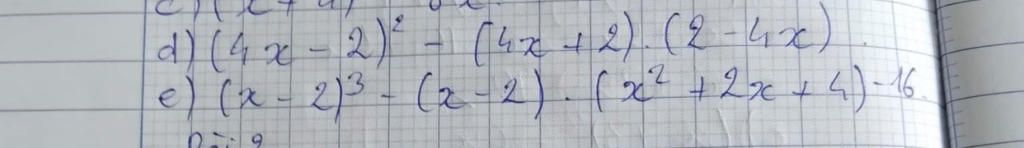 d) (4x - 2)² - (4x + 2) . (2 - 4x)
e) (x - 2)³ - (x - 2) . (x² + 2x + 4) - 16.